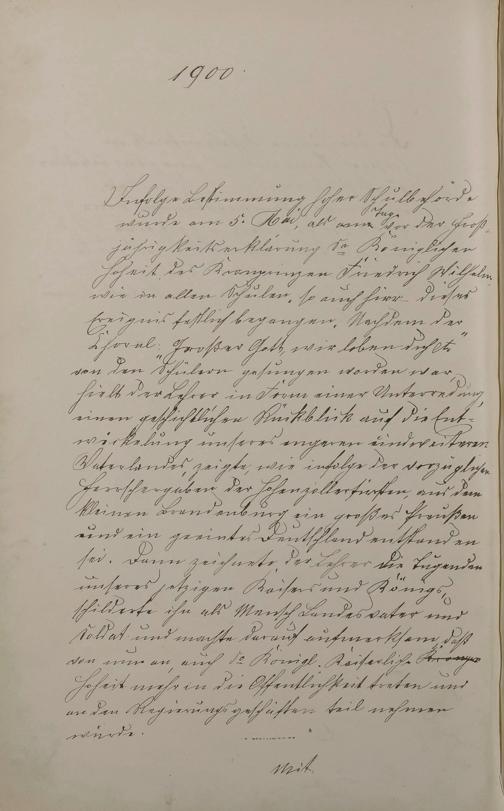 1900.
Infolge Bestimmung hoher Schulbehörde
wurde am 5. Mai, als am Tage vor der Groß-
jährigkeitserklärung Sr Königlichen
Hoheit des Kronprinzen Friedrich Wilhelm
wie in allen Schulen, so auch hier dieses
Ereignis festlich begangen. Nachdem der
Choral: „Großer Gott, wir loben dich etc“
von den Schülern gesungen worden war,
hielt der Lehrer in Form einer Unterredung
einen geschichtlichen Rückblick auf die Ent-
wickelung unseres engeren und weiteren
Vaterlandes, zeigte, wie infolge der vorzüglichen
Herrschergaben der Hohenzollerfürsten aus dem
kleinen Brandenburg ein großes Preußen
und ein geeintes Deutschland entstanden
sei. Dann zeichnete der Lehrer die Tugenden
unseres jetzigen Kaisers und Königs,
schilderte ihn als Mensch Landesvater und
Soldat und machte darauf aufmerksam, daß
von nun an auch Se Königl. Kaiserliche
Hoheit mehr in die Öffentlichkeit treten und
an den Regierungsgeschäften teil nehmen
würde.
Mit